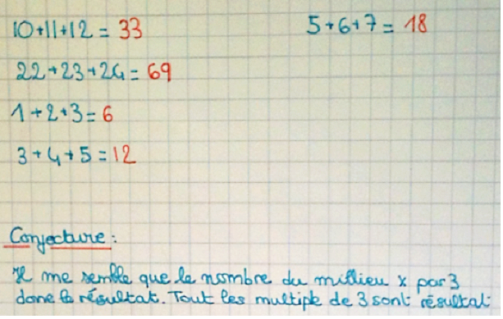 10+11+12 = 33
5+6+7 = 18
22+23+24 = 69
1+2+3 = 6
3+4+5 = 12
Conjecture :
Il me semble que le nombre du millieu x par 3
donne le résultat. Tout les multiple de 3 sont résultat